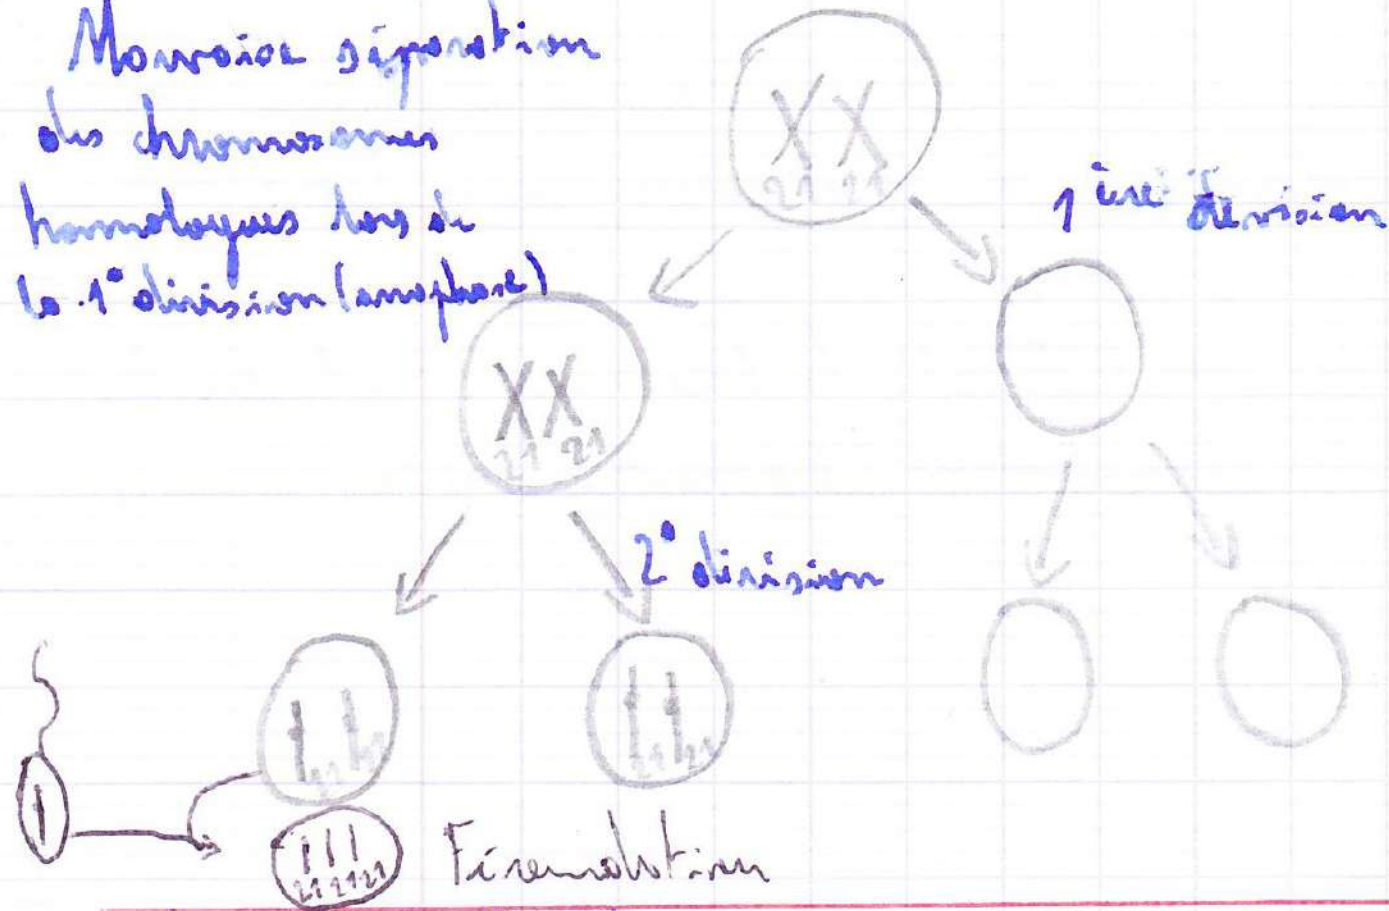 Mauvaise séparation
des chromosomes
homologues lors de
la 1° division (anaphase)
21 21
1ère division
21 21
2° division
21 21
21 21
21 21 21
Fécondation